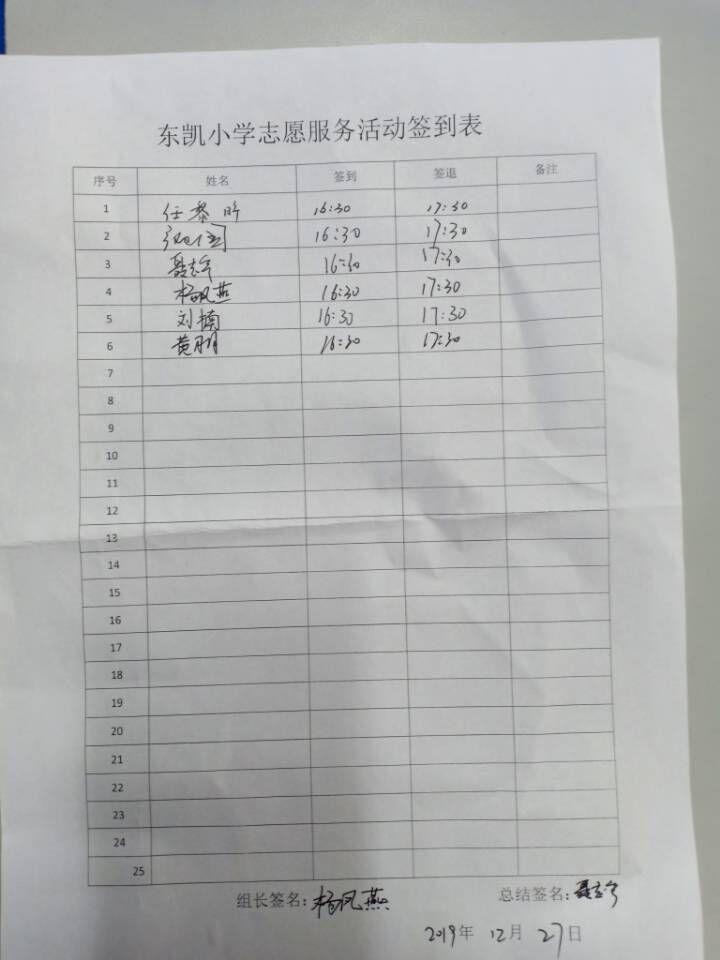 东凯小学志愿服务活动签到表
序号 姓名 签到 签退 备注
1 任黎昕 16:30 17:30
2 16:30 17:30
3 聂志宇 16:30 17:30
4 杨凤燕 16:30 17:30
5 刘楠 16:30 17:30
6 黄玥 16:30 17:30
7
8
9
10
11
12
13
14
15
16
17
18
19
20
21
22
23
24
25
组长签名：杨凤燕 总结签名：聂志宇
2019年 12月 27日